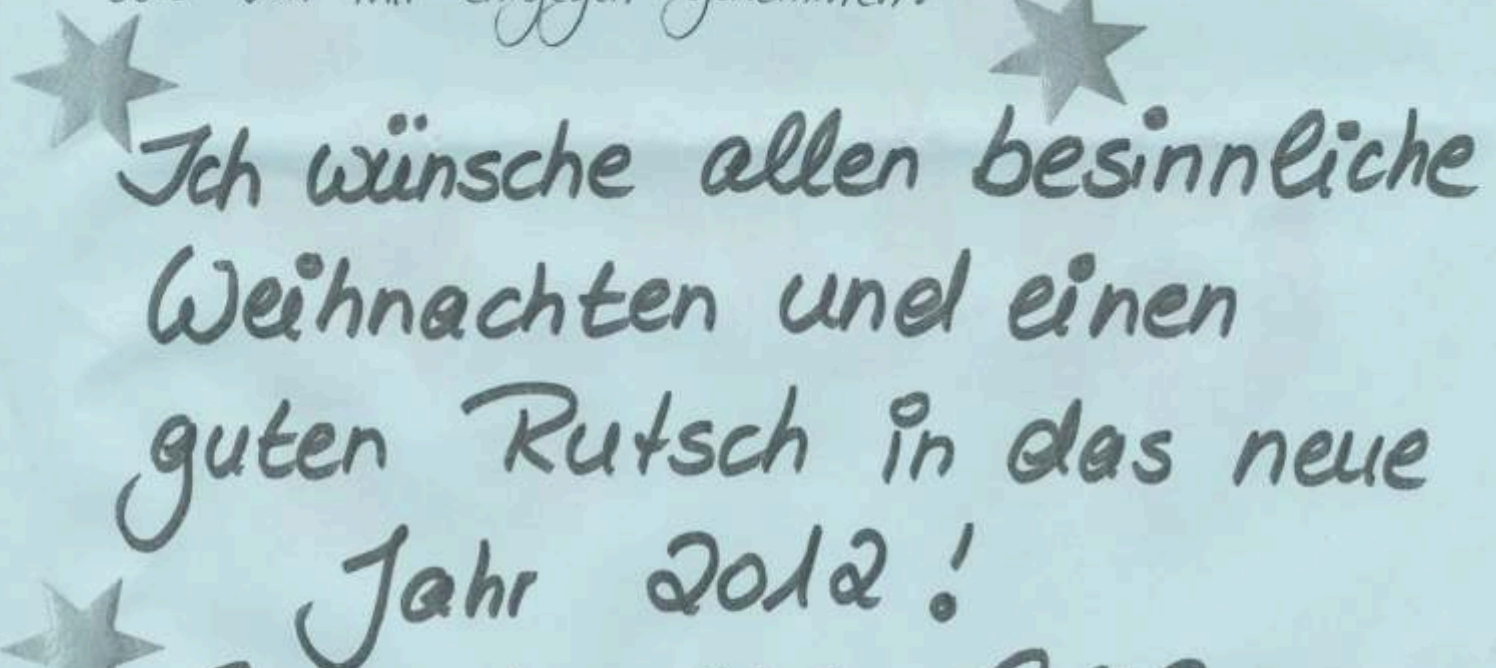 entgegen genommen.
Ich wünsche allen besinnliche
Weihnachten und einen
guten Rutsch in das neue
Jahr 2012!